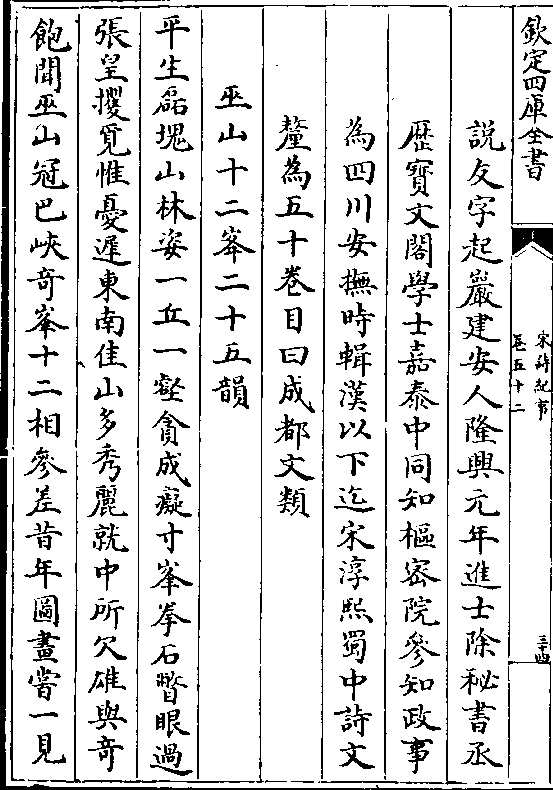 欽定四庫全書
宋詩紀事
卷五十二
三十四
說友字起巖建安人隆興元年進士除秘書丞
歴寳文閣學士嘉泰中同知樞密院參知政事
為四川安撫時輯漢以下迄宋淳熙蜀中詩文
釐為五十卷目曰成都文類
巫山十二峯二十五韻
平生磊塊山林姿一丘一壑貪成癡寸峯拳石瞥眼過
張皇攫覓惟憂遲東南佳山多秀麗就中所欠雄與竒
飽聞巫山冠巴峽竒峯十二相參差昔年圖畫嘗一見